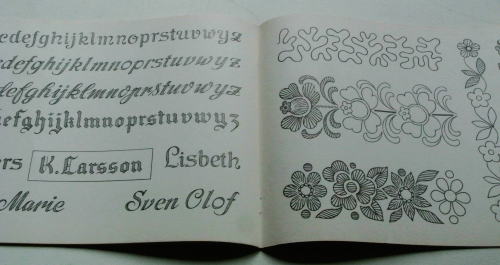 cdefghijklmnoprstuvwyz
cdefghijklmnoprstuvwyz
cdefghijklmnoprstuvwyz
efghijklmnoprstuvwyz
ers K. Larsson Lisbeth
Marie Sven Olof